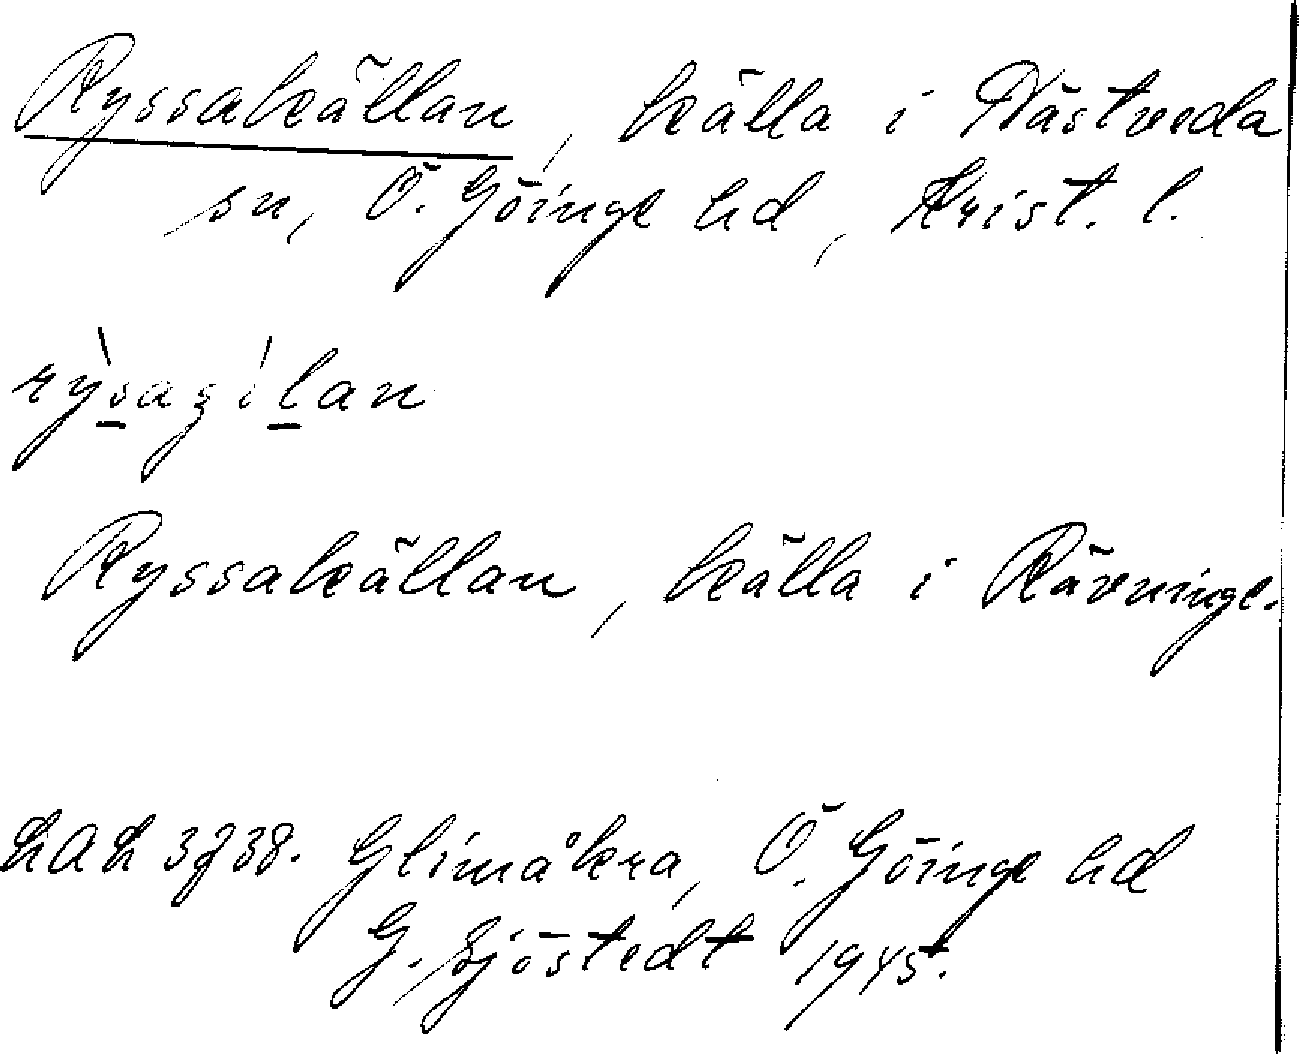 Ryssakällan, källa i Västveda
sn, Ö. Göinge hd, Krist. l.
Ryssakällan, källa i Rävninge.
Glimåkra, Ö. Göinge hd
G. Sjöstedt 1945.